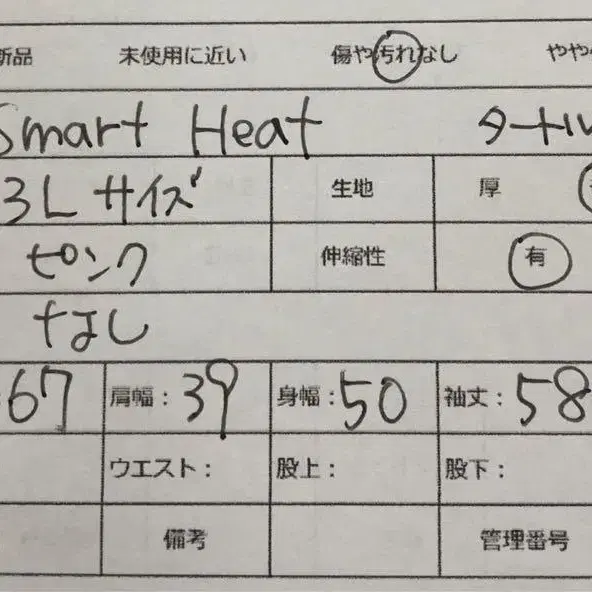 新品 未使用に近い 傷や汚れなし やや
Smart Heat タートル
3Lサイズ 生地 厚
ピンク 伸縮性 有
なし
67 肩幅: 39 身幅: 50 袖丈: 58
ウエスト: 股上: 股下:
備考 管理番号